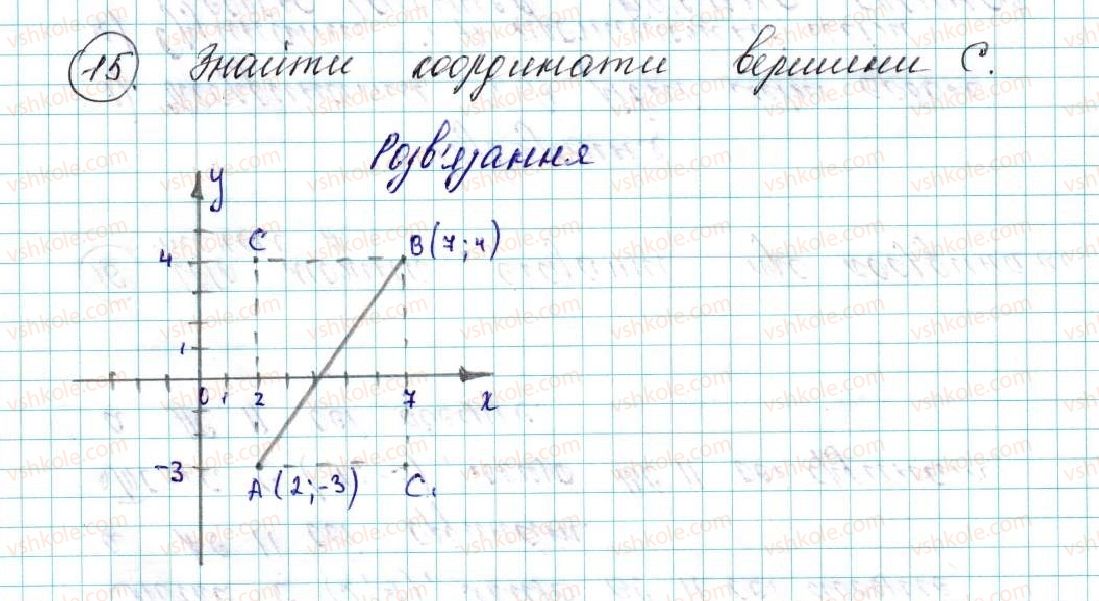 15. Знайти координати вершини С.
Розв'язання
y
C
B(7;4)
4
1
0 1 2 7 x
-3
A(2;-3) C₁
vshkole.com